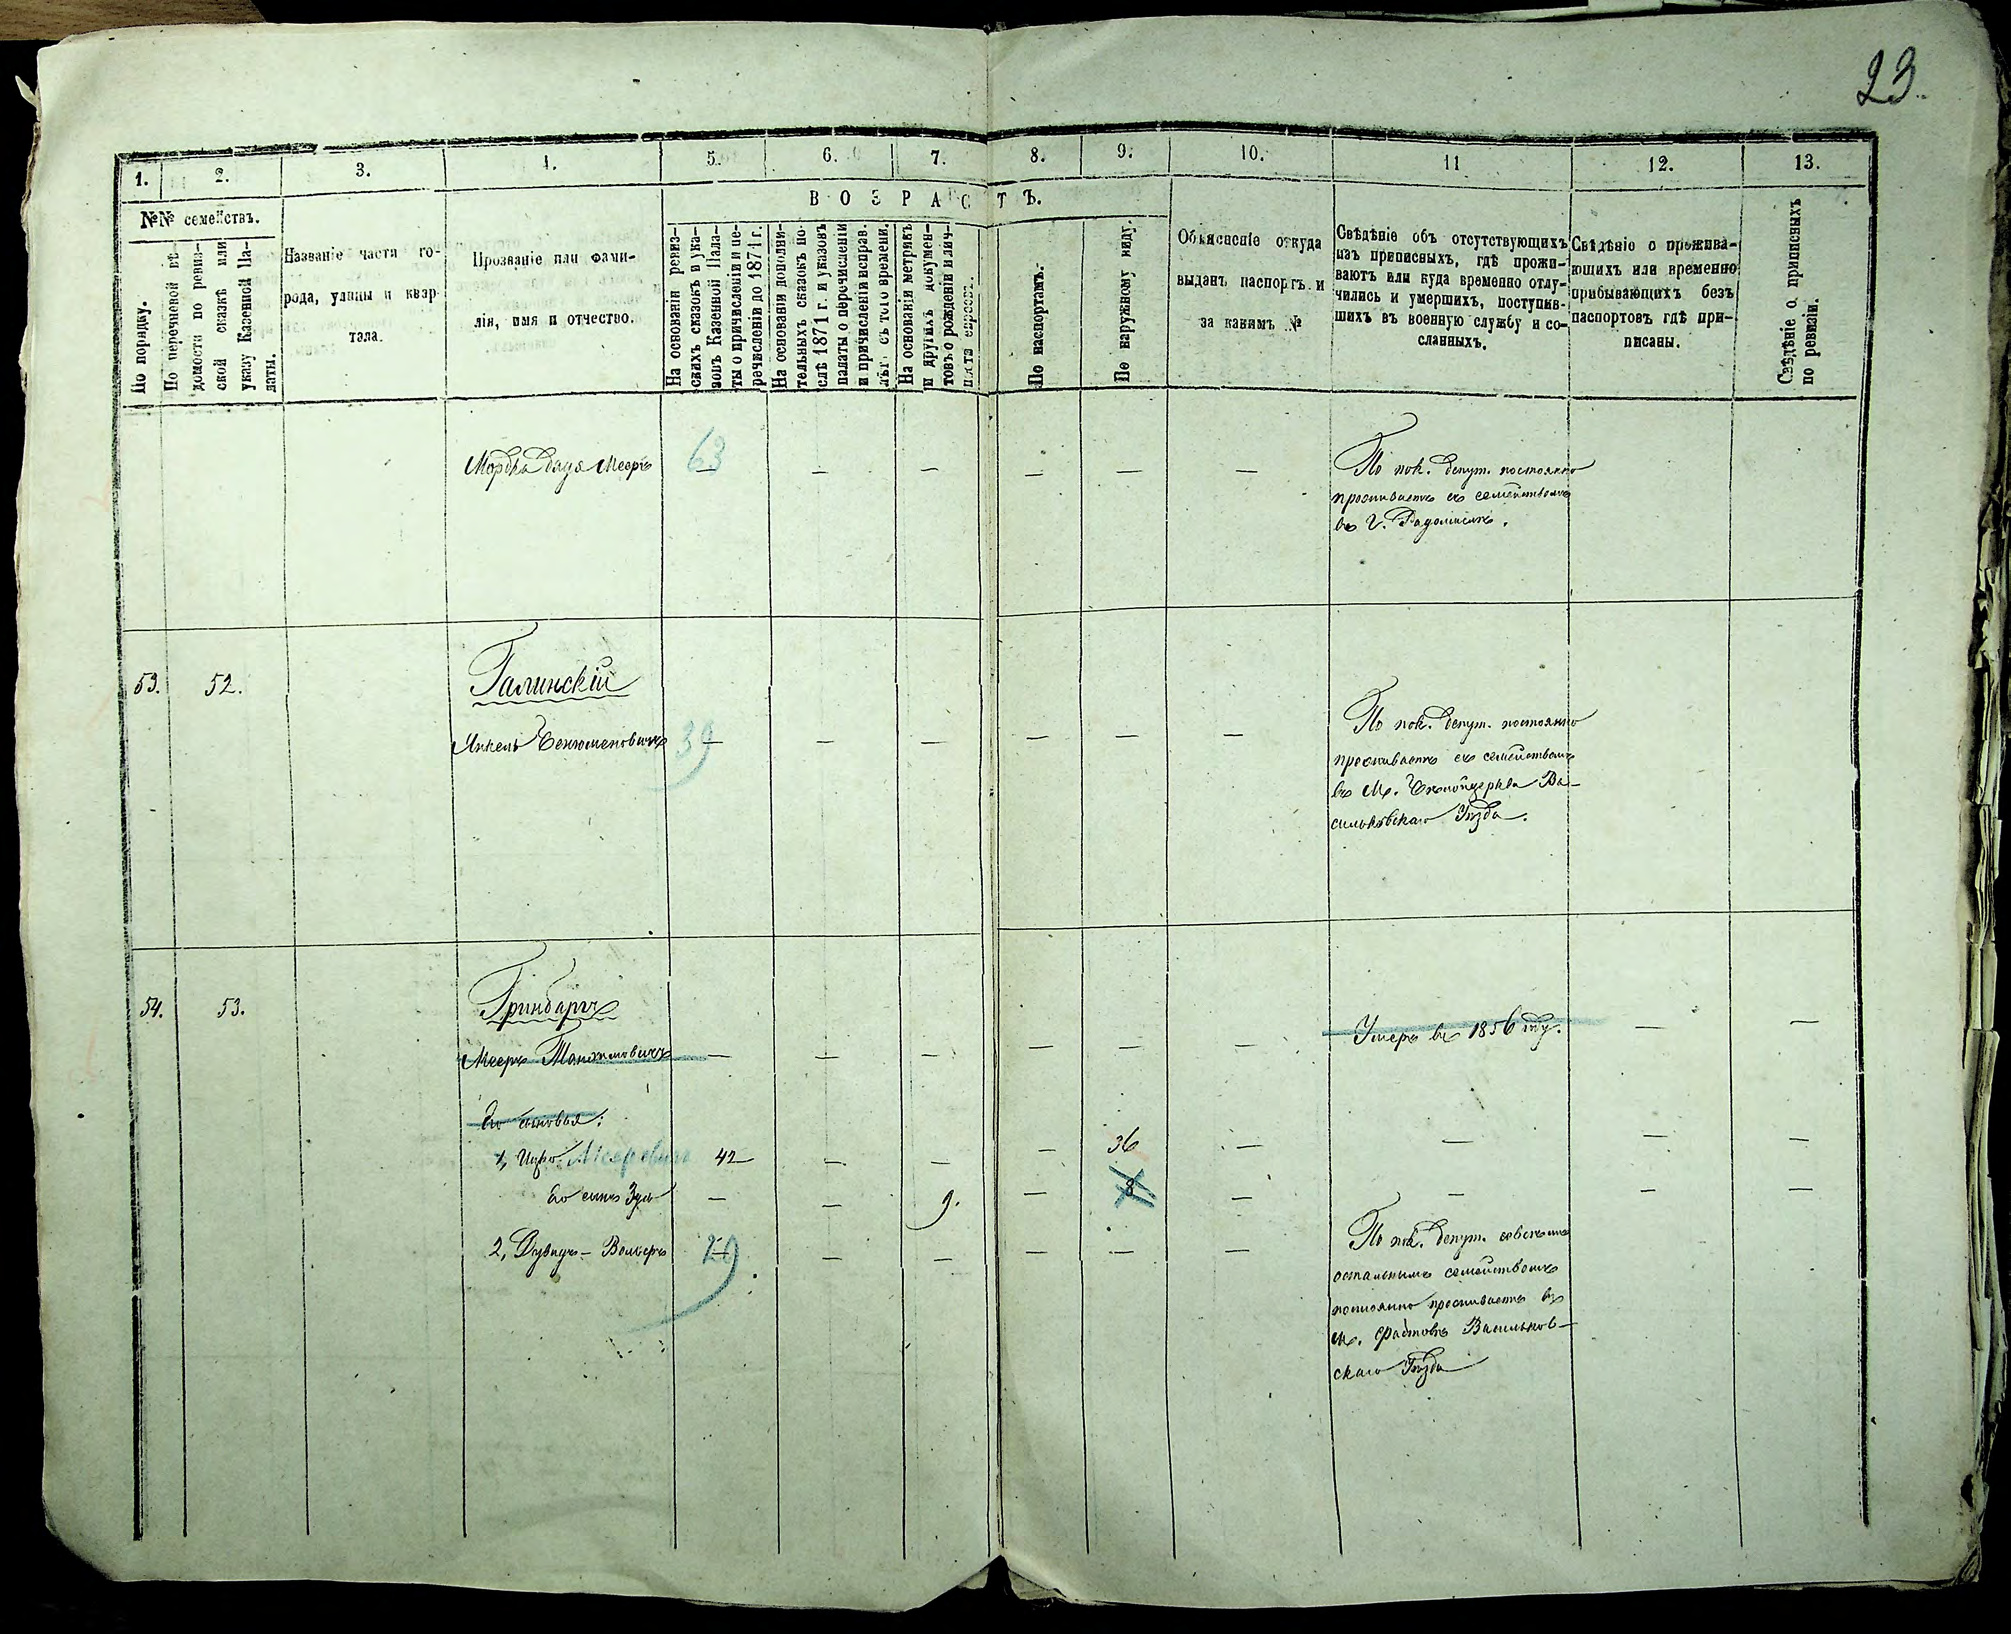 23.
1. 2. 3. 4. 5. 6. 7. 8. 9. 10. 11 12. 13.
№№ семействъ.
ВОЗРАСТЪ.
По порядку.
По перечневой вѣ-
домости по ревиз-
ской сказкѣ или
указу Казенной Па-
латы.
Названіе части го-
рода, улицы и квар
тала.
Прозваніе или фами-
лія, имя и отчество.
На основаніи ревиз-
скихъ сказокъ и ука-
зовъ Казенной Пала-
ты о причисленіи и пе-
речисленіи до 1871 г.
На основаніи дополни-
тельныхъ сказокъ по-
слѣ 1871 г. и указовъ
палаты о перечисленіи
и причисленіи исправ.
лѣт. съ того времени.
На основаніи метрикъ
и другихъ докумен-
товъ о рожденіи и лич-
наго спроса.
По паспортамъ.
По наружному виду.
Объясненіе откуда
выданъ паспортъ и
за какимъ №
Свѣдѣніе объ отсутствующихъ
изъ приписныхъ, гдѣ прожи-
ваютъ или куда временно отлу-
чились и умершихъ, поступив-
шихъ въ военную службу и со-
сланныхъ.
Свѣдѣніе о прожива-
ющихъ или временно
прибывающихъ безъ
паспортовъ гдѣ при-
писаны.
Свѣдѣніе о приписныхъ
по ревизіи.
Мееръ 63 — — — — —
По пок. депут. постоянно
проживаетъ съ семействомъ
въ г. Радомислѣ.
53. 52. Галинскій
Янкель Бенюменовичъ 39 — — — — —
По пок. депут. постоянно
проживаетъ съ семействомъ
въ м. Василь-
ковскаго Уѣзда.
54. 53. Гринбаргъ
Мееръ — — — — — — Умеръ въ 1856 году. — —
Его сыновья:
1, Меероовичъ 42 — — — 36 — — — —
Его сынъ — — 9. — 8 — — — —
2, Дувидъ-Вольфъ 29 — — — — —
По пок. депут. со всѣмъ
остальнымъ семействомъ
постоянно проживаетъ въ
м. Фастовѣ Васильков-
скаго Уѣзда